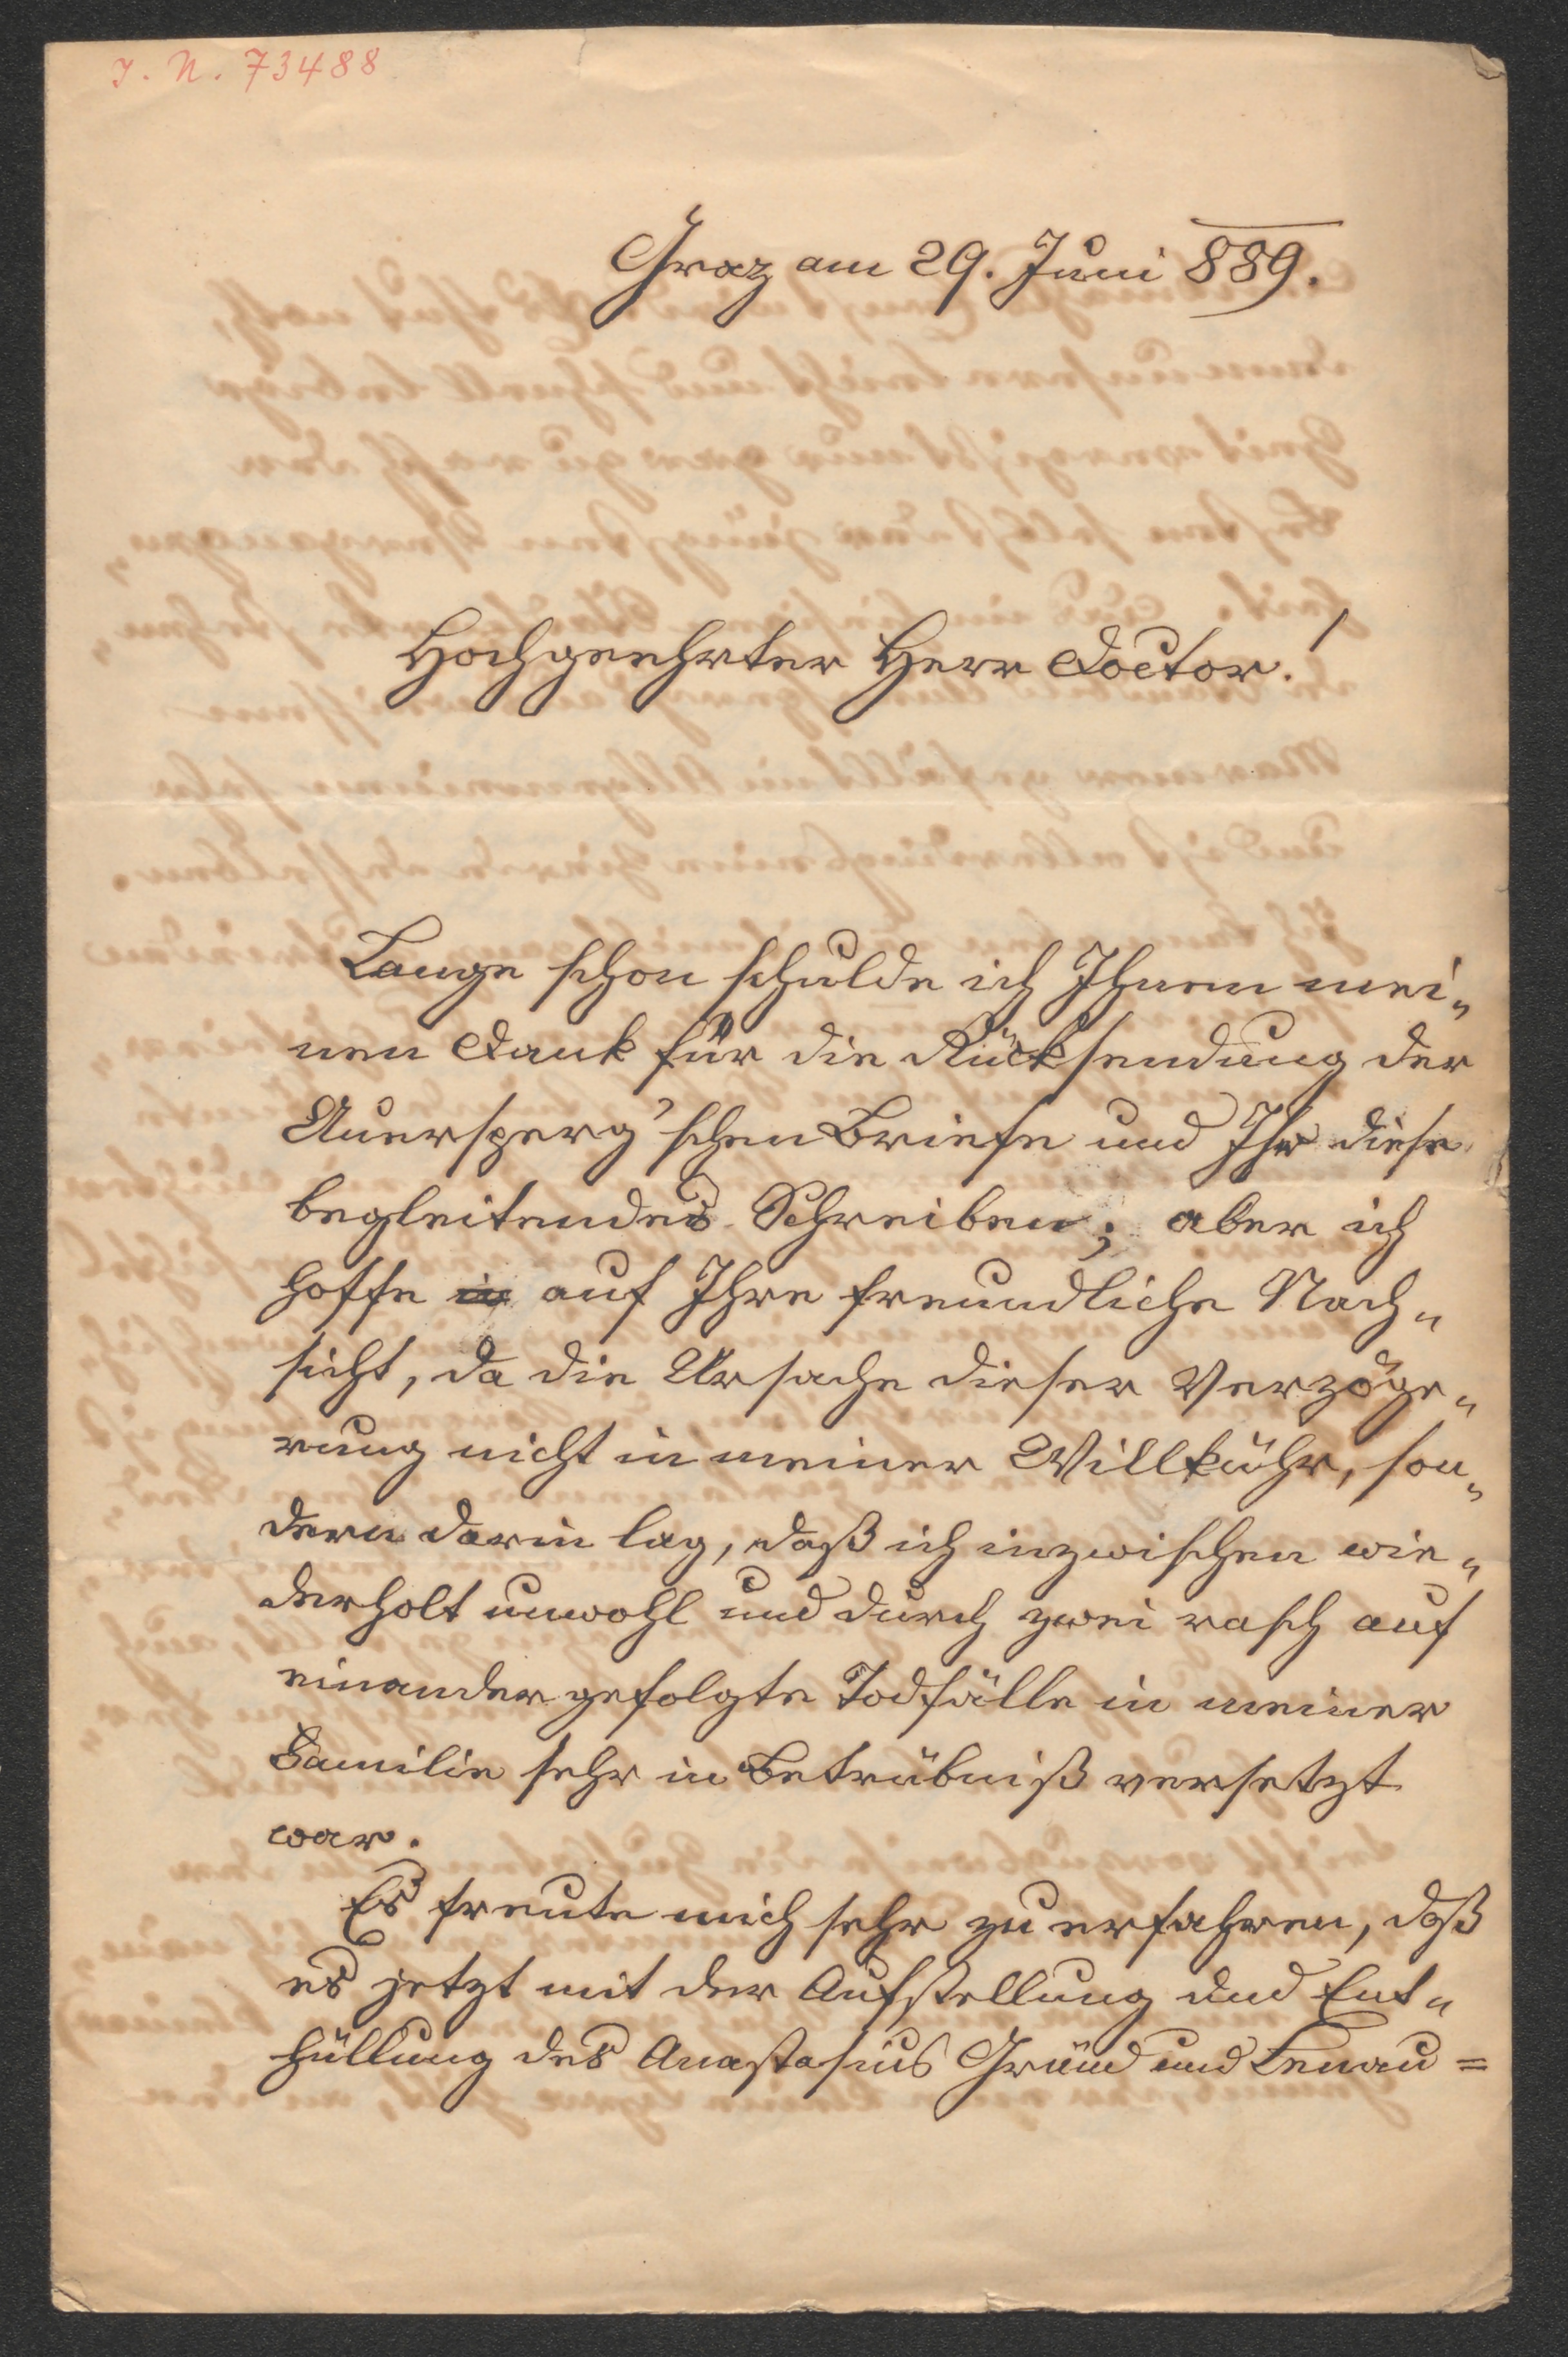 I. N. 73488
Graz am 29. Juni 889.
Hochgeehrter Herr Doctor!
Lange schon schulde ich Ihnen mei„
nen Dank für die Rücksendung der
Auersperg'schen Briefe und Ihr diese
begleitendes Schreiben; aber ich
hoffe auf Ihre freundliche Nach„
sicht, da die Ursache dieser Verzöge„
rung nicht in meiner Willkühr, son„
dern darin lag, daß ich inzwischen wie„
derholt unwohl und durch zwei rasch auf
einander gefolgte Todfälle in meiner
Familie sehr in Betrübniß versetzt
war.
Es freute mich sehr zu erfahren, daß
es jetzt mit der Aufstellung und Ent„
hüllung des Anastasius Grün und Lenau=